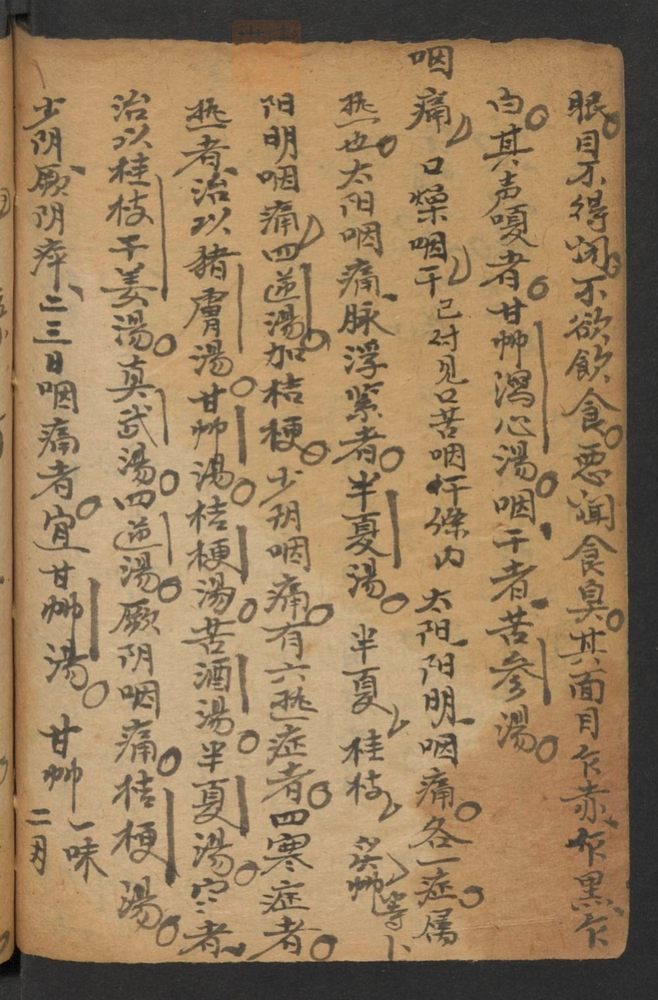 眼目不得闭。不欲飲食。恶闻食臭。其面目乍赤、乍黑、乍
白。其声嗄者。甘艸瀉心湯。咽干者苦参湯。
咽痛 口燥咽干 已付见口苦咽干條内 太阳阳明咽痛。各一症属
热也。太阳咽痛、脉浮紧者。半夏湯。半夏 桂枝 炙艸 等卜
阳明咽痛 四逆湯加桔梗。少阴咽痛。有六热症者。四寒症者。
热者、治以猪膚湯。甘艸湯。桔梗湯。苦酒湯。半夏湯。寒者、
治以桂枝干姜湯。真武湯。四逆湯。厥阴咽痛。桔梗湯。
少阴厥阴病、二三日咽痛者。宜甘艸湯。甘艸一味 二月